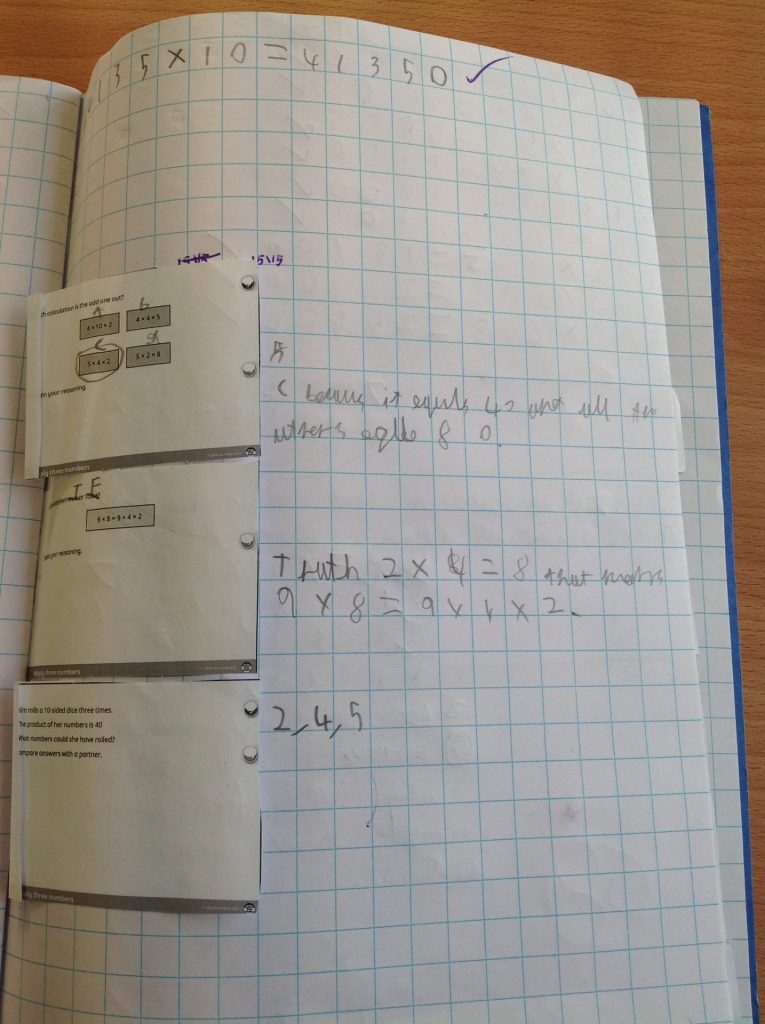 135 × 10 = 41350 ✓
15\15
calculation is the odd one out?
A b
4 × 10 × 2 4 × 4 × 5
C d
5 × 4 × 2 5 × 2 × 8
your reasoning.
three numbers
A
C it equals and all
8 0.
T F
9 × 8 = 9 × 4 × 2
your reasoning.
three numbers
Truth 2 × 4 = 8 that
9 × 8 = 9 × 4 × 2.
rolls a 10-sided dice three times.
he product of her numbers is 40
hat numbers could she have rolled?
ompare answers with a partner.
2,4,5
three numbers